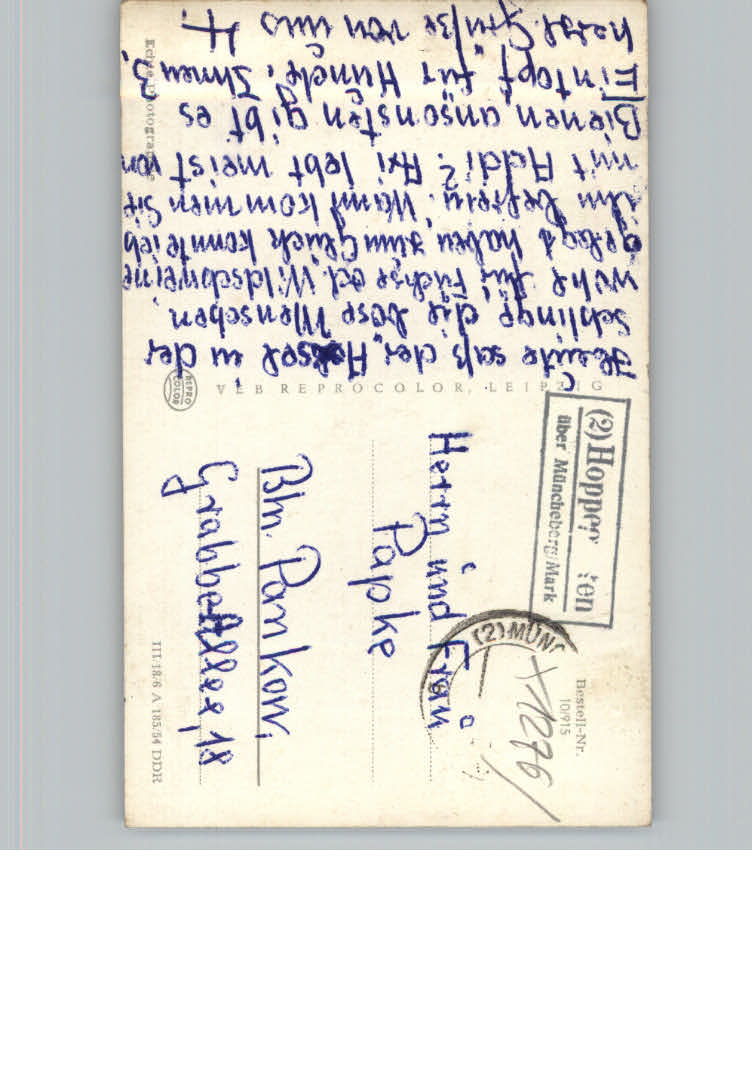 Heute saß der "Hessel in der
Schlinge die böse Menschen
wohl für Füchse od. Wildschweine
gelegt haben zum Glück konnte ich
ihn befrein. Wann kommen Sie
mit Addi? Axi lebt meist von
Bienen ansonsten gibt es
"Eintopf" für Hunde. Ihnen 3,
herzl. Grüße von uns 4.
Echte Photographie
VEB REPROCOLOR, LEIPZIG
REPRO
COLOR
(2) Hoppe ten
über Müncheberg/Mark
(2) MÜNC
Bestell-Nr.
10/915
1276/
Herrn und Frau
Papke
Bln. Pankow,
Grabbe Allee, 18
III/18/6 A 185/54 DDR